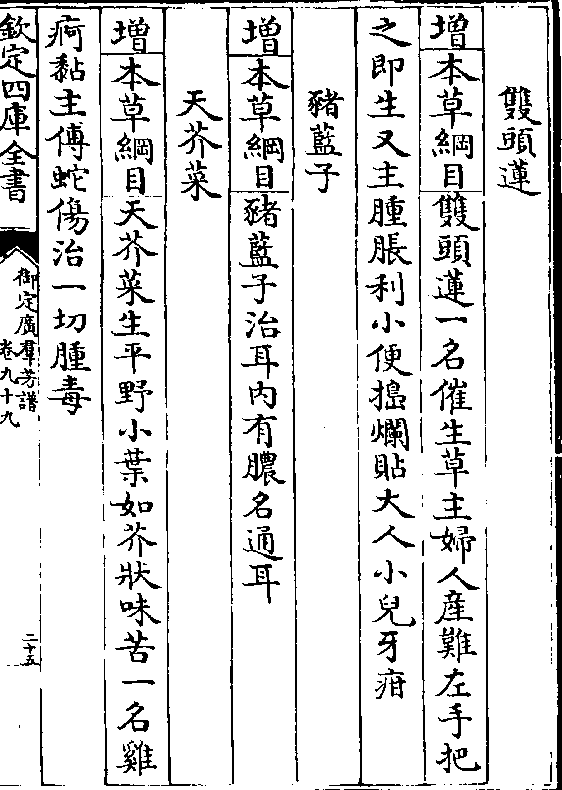 雙頭蓮
增本草綱目雙頭蓮一名催生草主婦人產難左手把
之即生又主腫脹利小便搗爛貼大人小兒牙疳
豬藍子
增本草綱目豬藍子治耳内有膿名通耳
天芥菜
增本草綱目天芥菜生平野小葉如芥狀味苦一名雞
疴黏主傅蛇傷治一切腫毒
欽定四庫全書
御定廣羣芳譜
卷九十九
二十五